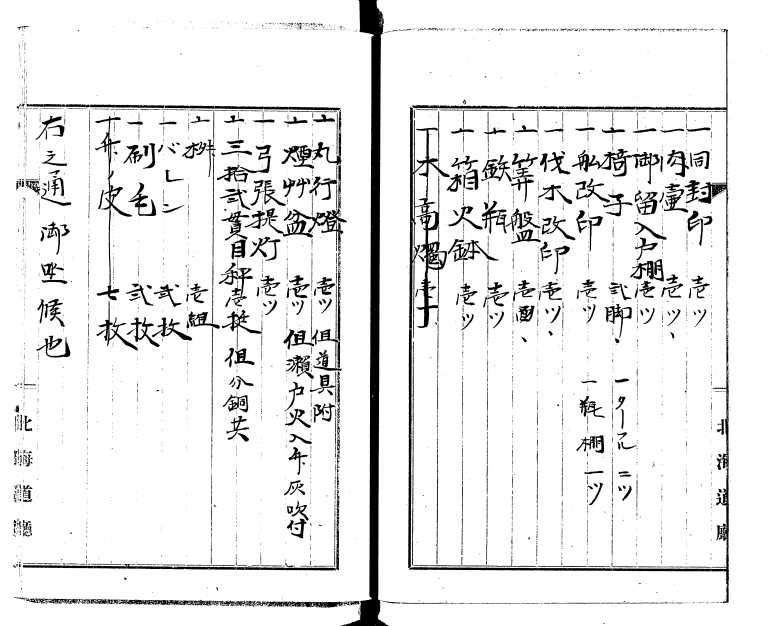 一同封印 壱ツ
一肉壷 壱ツ、
一御留入戸棚 壱ツ
一椅子 弐脚、 一ターフル ニツ
一船改印 壱ツ 一瓶棚 一ツ
一伐木改印 壱ツ、
一算盤 壱面、
一鉄瓶 壱ツ
一箱火鉢 壱ツ
一木高燭 壱丁
北海道廳
一丸行燈 壱ツ 但道具附
一煙艸盆 壱ツ 但瀬戸火入并灰吹付
一弓張提灯 壱ツ
一三拾弐貫目秤壱挺 但分銅共
一桝 壱組
一バレン 弐枚
一刷毛 弐枚
一竹ノ皮 七枚
右之通御坐候也
北海道廳